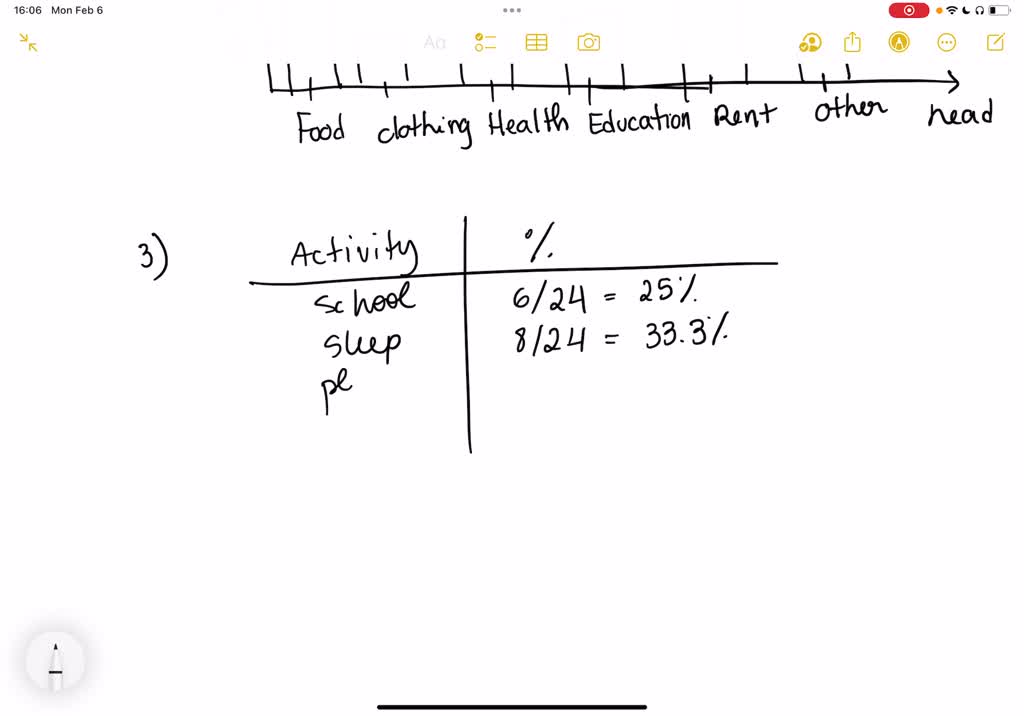 16:06 Mon Feb 6
Aa
Food clothing Health Education Rent other head
3) Activity %
school 6/24 = 25%
sleep 8/24 = 33.3%
pl